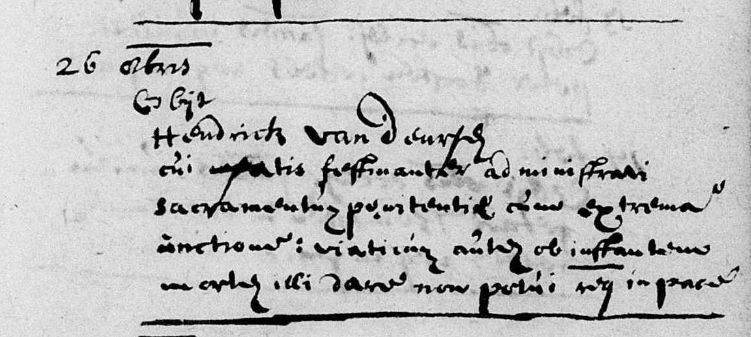 26 8bris
Obijt
Hendrick van Deursen
cui satis festinanter administravi
sacramentum penitentie cum extrema
unctione: viaticum autem ob instantem
mortem illi dare non potui req in pace